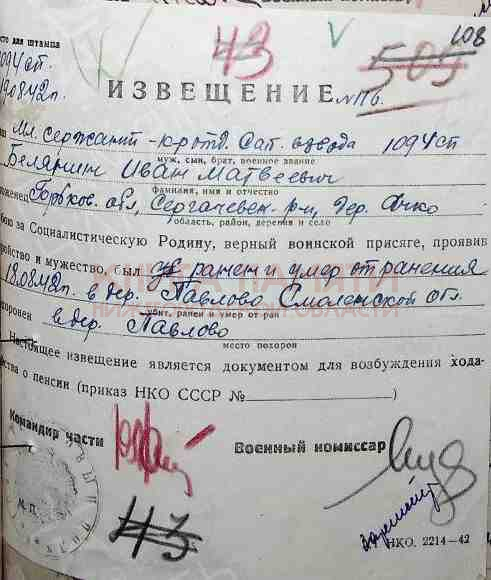 108
43
505
сто для штампа
1094 сп.
19.08.42г.
ИЗВЕЩЕНИЕ № 116.
Мл. сержант - Сап. взвода 1094 сп
муж, сын, брат, военное звание
Белянин Иван Матвеевич
фамилия, имя и отчество
оженец Горьков. обл, Сергачевск. р-н, дер. Ачко
область, район, деревня и село
бою за Социалистическую Родину, верный воинской присяге, проявив
ройство и мужество, был ранен и умер от ранения
18.08.42г. в дер. Павлово Смоленской обл.
убит, ранен и умер от ран
хоронен в дер. Павлово
место похорон
Настоящее извещение является документом для возбуждения хода-
ства о пенсии (приказ НКО СССР №)
Командир части
Военный комиссар
М.П.
43
НКО. 2214—42
КНИГА ПАМЯТИ
НИЖЕГОРОДСКОЙ ОБЛАСТИ